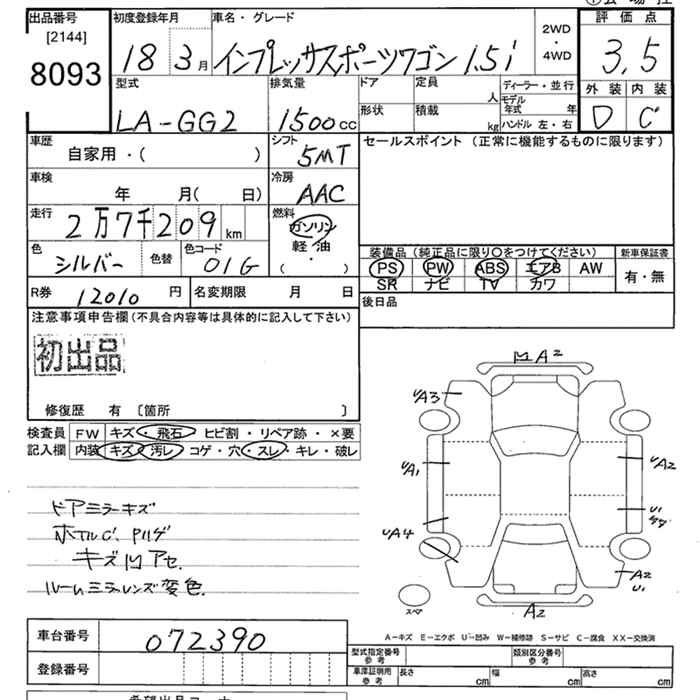 出品番号
[2144]
8093
初度登録年月
18 3月
車名・グレード
インプレッサスポーツワゴン 1.5i
2WD
・
4WD
評価点
3,5
外装 内装
D C
型式
LA-GG2
排気量
1500cc
ドア
定員
人
形状
積載
kg
ディーラー・並行
モデル年式 年
ハンドル 左・右
車歴
自家用・( )
シフト
5MT
セールスポイント(正常に機能するものに限ります)
車検
年 月( 日)
冷房
AAC
走行
2万7千209km
燃料
ガソリン
軽油
( ・ )
色
シルバー
色替
色コード
01G
装備品(純正品に限り○をつけてください)
新車保証書
PS PW ABS エアB AW
SR ナビ TV カワ
有・無
R券
12010円
名変期限 月 日
後日品
注意事項申告欄(不具合内容等は具体的に記入して下さい)
初出品
修復歴 有 〔箇所 〕
検査員
記入欄
FW キズ・飛石・ヒビ割・リペア跡・×要
内装 キズ・汚レ・コゲ・穴・スレ・キレ・破レ
ドアミラーキズ
ホイルC、
キズ凹アセ、
ルームミラーレンズ変色、
凹A2
UA3
UA1
UA4
UA2
U1
A2
U1
A2
スペア
A−キズ E−エクボ U−凹み W−補修跡 S−サビ C−腐食 XX−交換済
車台番号
072390
登録番号
型式指定番号
参考
類別区分番号
参考
車庫証明用
参考
長さ cm
幅 cm
高さ cm